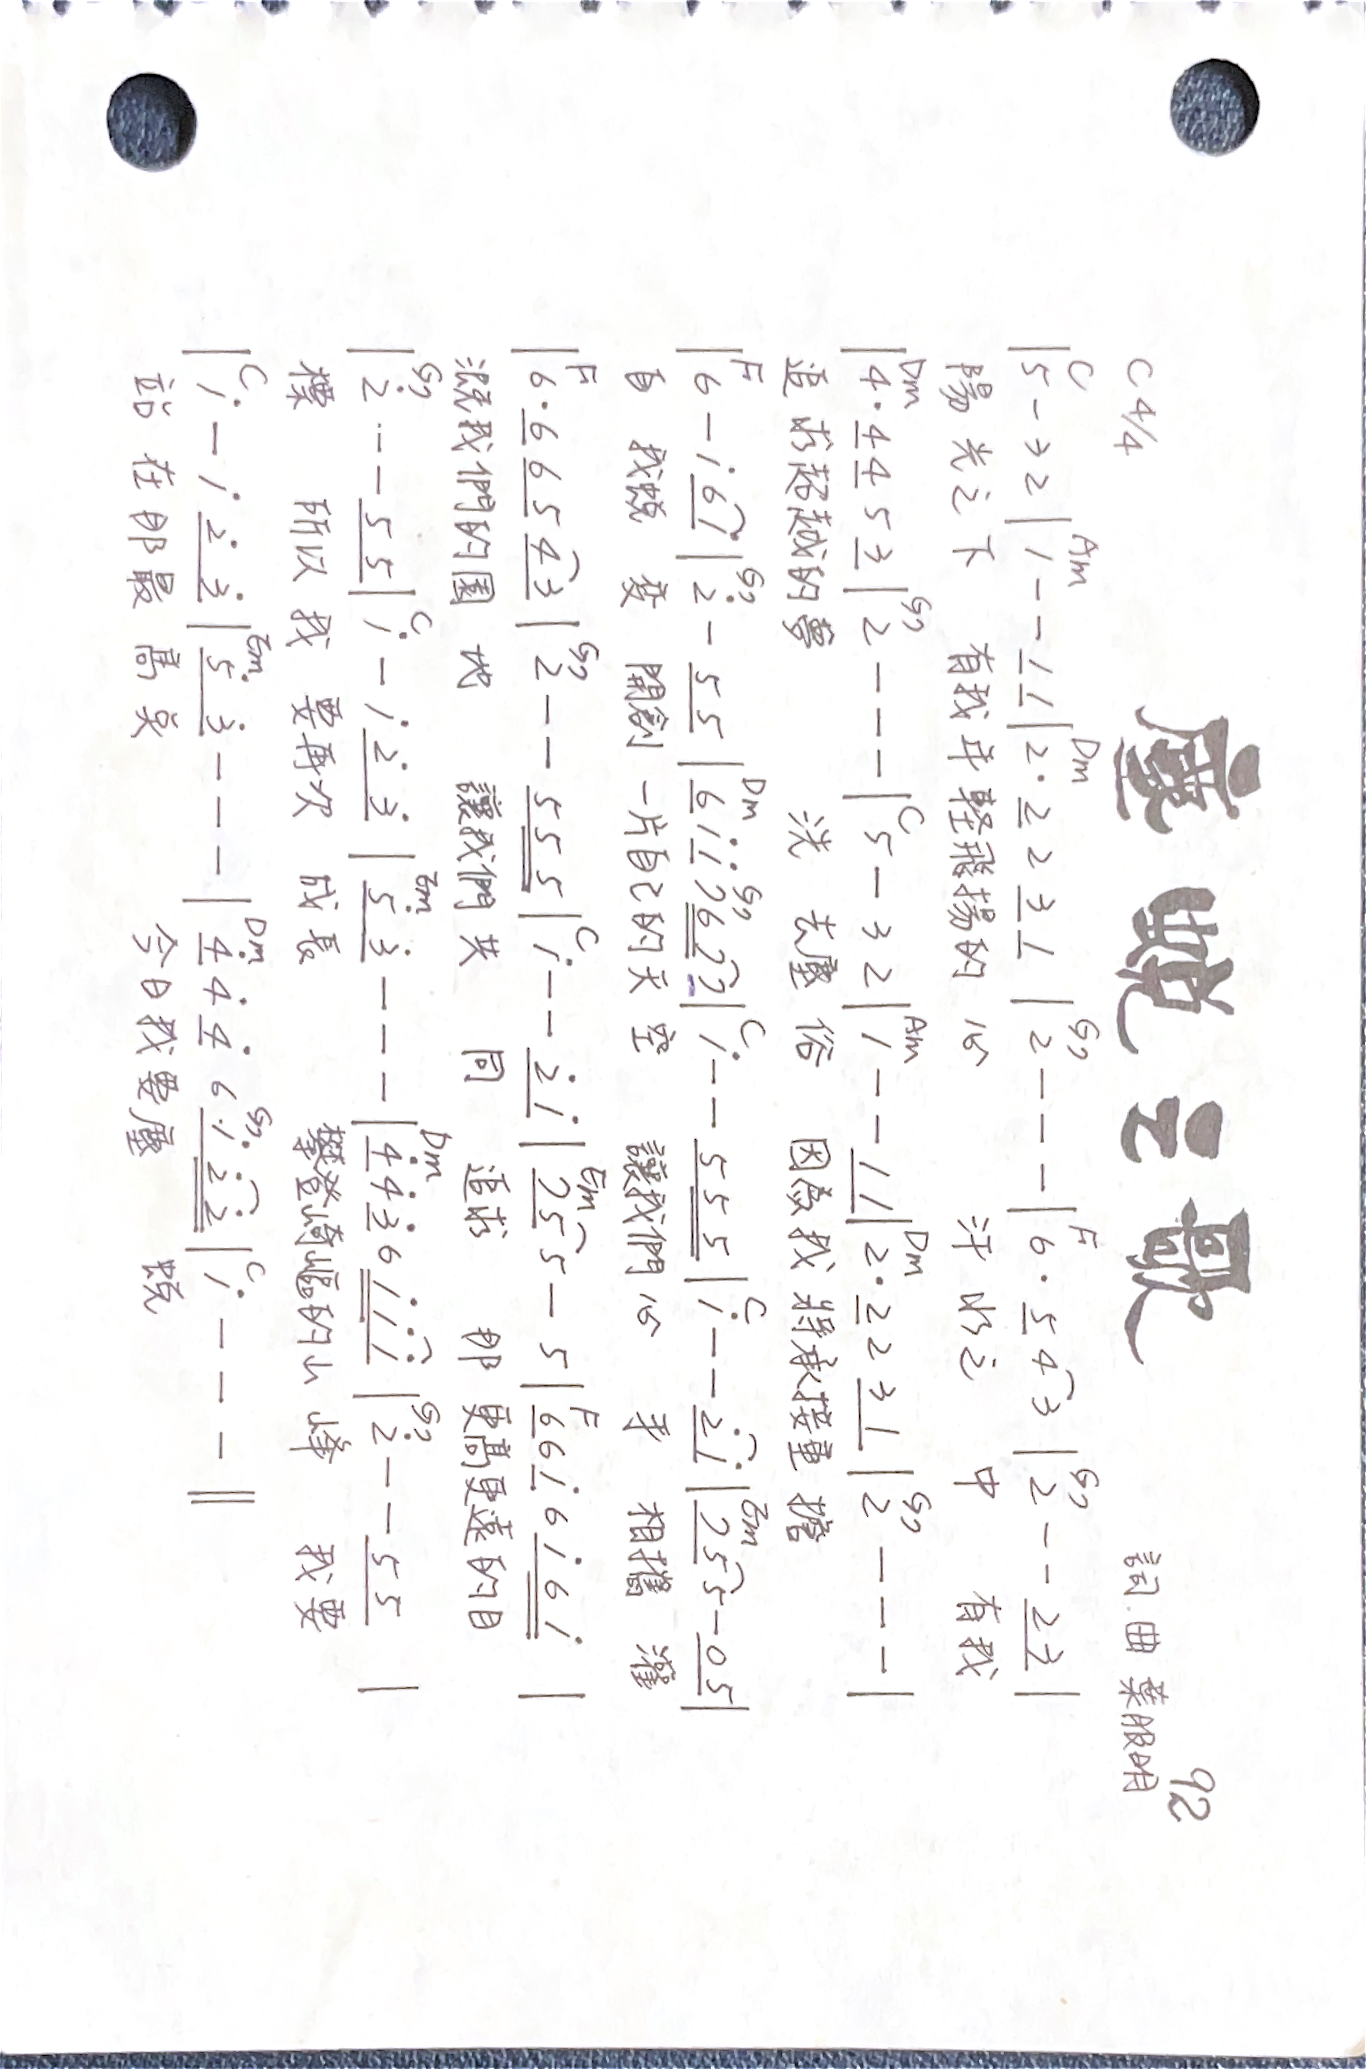 塵蛻之歌
92
C 4/4
詞.曲 葉服明
C Am Dm G7 F G7
|5 - 3 2|1 - - 1 1|2· 2 2 3 1|2 - - -|6· 5 4 3|2 - - 2 3|
陽光之下 有我年輕飛揚的心 汗水之中 有我
Dm G7 C Am Dm G7
|4· 4 4 5 3|2 - - -|5 - 3 2|1 - - 1 1|2· 2 2 3 1|2 - - -|
追求超越的夢 洗去塵俗 因為我將承接重擔
F G7 Dm G7 C C Em
|6 - i 6 i|2̇ - 5 5|6 i i 7 6 7 7|i - - 5 5 5|i - - 2̇ i|7 5 5 - 0 5|
自我蛻變 開創一片自己的天空 讓我們心手相攜 灌
F G7 C Em F
|6· 6 6 5 4 3|2 - - 5 5 5|i - - 2̇ i|7 5 5 - 5|6 6 i 6 i 6 i|
溉我們的園地 讓我們共同追求 那更高更遠的目
G7 C Em Dm G7
|2̇ - - - 5 5|i - i 2̇ 3̇|5̇ 3̇ - - -|4̇ 4̇ 3̇ 6 i i i|2̇ - - 5 5|
標 所以我要再次成長 攀登崎嶇的山峰 我要
C Em Dm G7 C
|i - i 2̇ 3̇|5̇ 3̇ - - -|4̇ 4̇ 4̇ 6 ·i 2̇ 2̇|i - - -||
站在那最高點 今日我要塵蛻